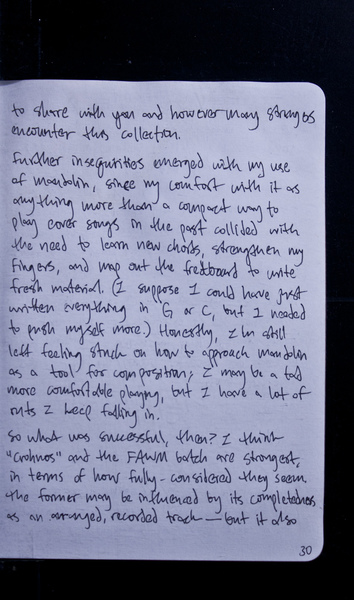 to share with you and however many strangers
encounter this collection.
Further insequrities emerged with my use
of mandolin, since my comfort with it as
anything more than a compact way to
play cover songs in the past collided with
the need to learn new chords, strengthen my
fingers, and map out the fretboard to write
fresh material. (I suppose I could have just
written everything in G or C, but I needed
to push myself more.) Honestly, I'm still
left feeling stuck on how to approach mandolin
as a tool for composition; I may be a tad
more comfortable playing, but I have a lot of
ruts I keep falling in.
So what was successful, then? I think
and the FAWM batch are strongest,
in terms of how fully-considered they seem.
The former may be influenced by its completedness
as an arranged, recorded track — but it also
30